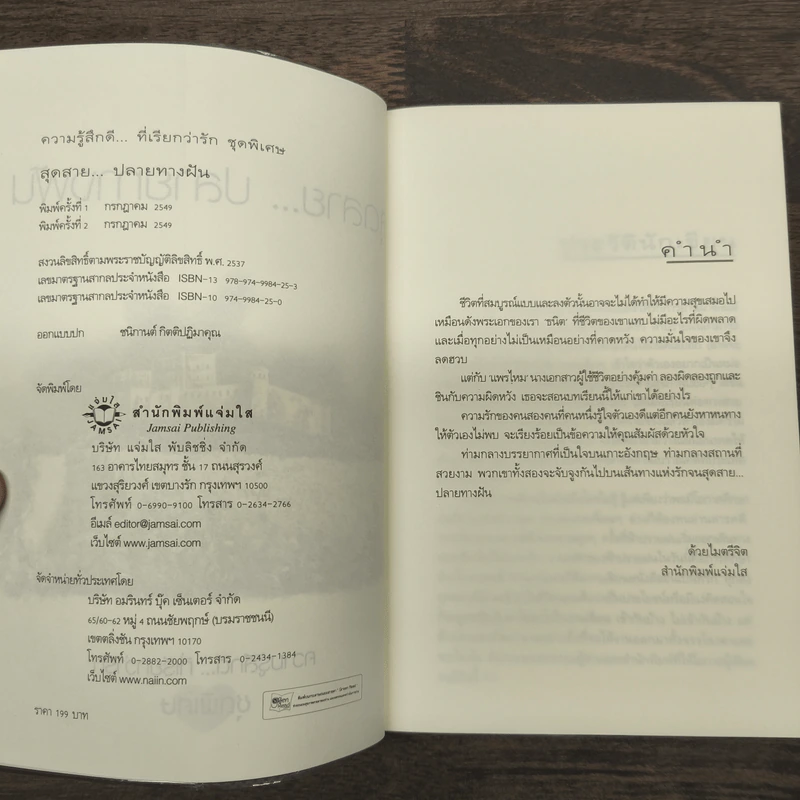 ความรู้สึกดี... ที่เรียกว่ารัก ชุดพิเศษ
สุดสาย... ปลายทางฝัน
พิมพ์ครั้งที่ 1 กรกฎาคม 2549
พิมพ์ครั้งที่ 2 กรกฎาคม 2549
สงวนลิขสิทธิ์ตามพระราชบัญญัติลิขสิทธิ์ พ.ศ. 2537
เลขมาตรฐานสากลประจำหนังสือ ISBN-13 978-974-9984-25-3
เลขมาตรฐานสากลประจำหนังสือ ISBN-10 974-9984-25-0
ออกแบบปก ชนิกานต์ กิตติปฏิมาคุณ
จัดพิมพ์โดย
แจ่มใส
JAMSAI
สำนักพิมพ์แจ่มใส
Jamsai Publishing
บริษัท แจ่มใส พับลิชชิ่ง จำกัด
163 อาคารไทยสมุทร ชั้น 17 ถนนสุรวงศ์
แขวงสุริยวงศ์ เขตบางรัก กรุงเทพฯ 10500
โทรศัพท์ 0-6990-9100 โทรสาร 0-2634-2766
อีเมล์ editor@jamsai.com
เว็บไซต์ www.jamsai.com
จัดจำหน่ายทั่วประเทศโดย
บริษัท อมรินทร์ บุ๊ค เซ็นเตอร์ จำกัด
65/60-62 หมู่ 4 ถนนชัยพฤกษ์ (บรมราชชนนี)
เขตตลิ่งชัน กรุงเทพฯ 10170
โทรศัพท์ 0-2882-2000 โทรสาร 0-2434-1384
เว็บไซต์ www.naiin.com
ราคา 199 บาท
คำนำ
ชีวิตที่สมบูรณ์แบบและลงตัวนั้นอาจจะไม่ได้ทำให้มีความสุขเสมอไป
เหมือนดังพระเอกของเรา 'ธนิต' ที่ชีวิตของเขาแทบไม่มีอะไรที่ผิดพลาด
และเมื่อทุกอย่างไม่เป็นเหมือนอย่างที่คาดหวัง ความมั่นใจของเขาจึง
ลดฮวบ
แต่กับ 'แพรไหม' นางเอกสาวผู้ใช้ชีวิตอย่างคุ้มค่า ลองผิดลองถูกและ
ชินกับความผิดหวัง เธอจะสอนบทเรียนนี้ให้แก่เขาได้อย่างไร
ความรักของคนสองคนที่คนหนึ่งรู้ใจตัวเองดีแต่อีกคนยังหาหนทาง
ให้ตัวเองไม่พบ จะเรียงร้อยเป็นข้อความให้คุณสัมผัสด้วยหัวใจ
ท่ามกลางบรรยากาศที่เป็นใจบนเกาะอังกฤษ ท่ามกลางสถานที่
สวยงาม พวกเขาทั้งสองจะจับจูงกันไปบนเส้นทางแห่งรักจนสุดสาย...
ปลายทางฝัน
ด้วยไมตรีจิต
สำนักพิมพ์แจ่มใส